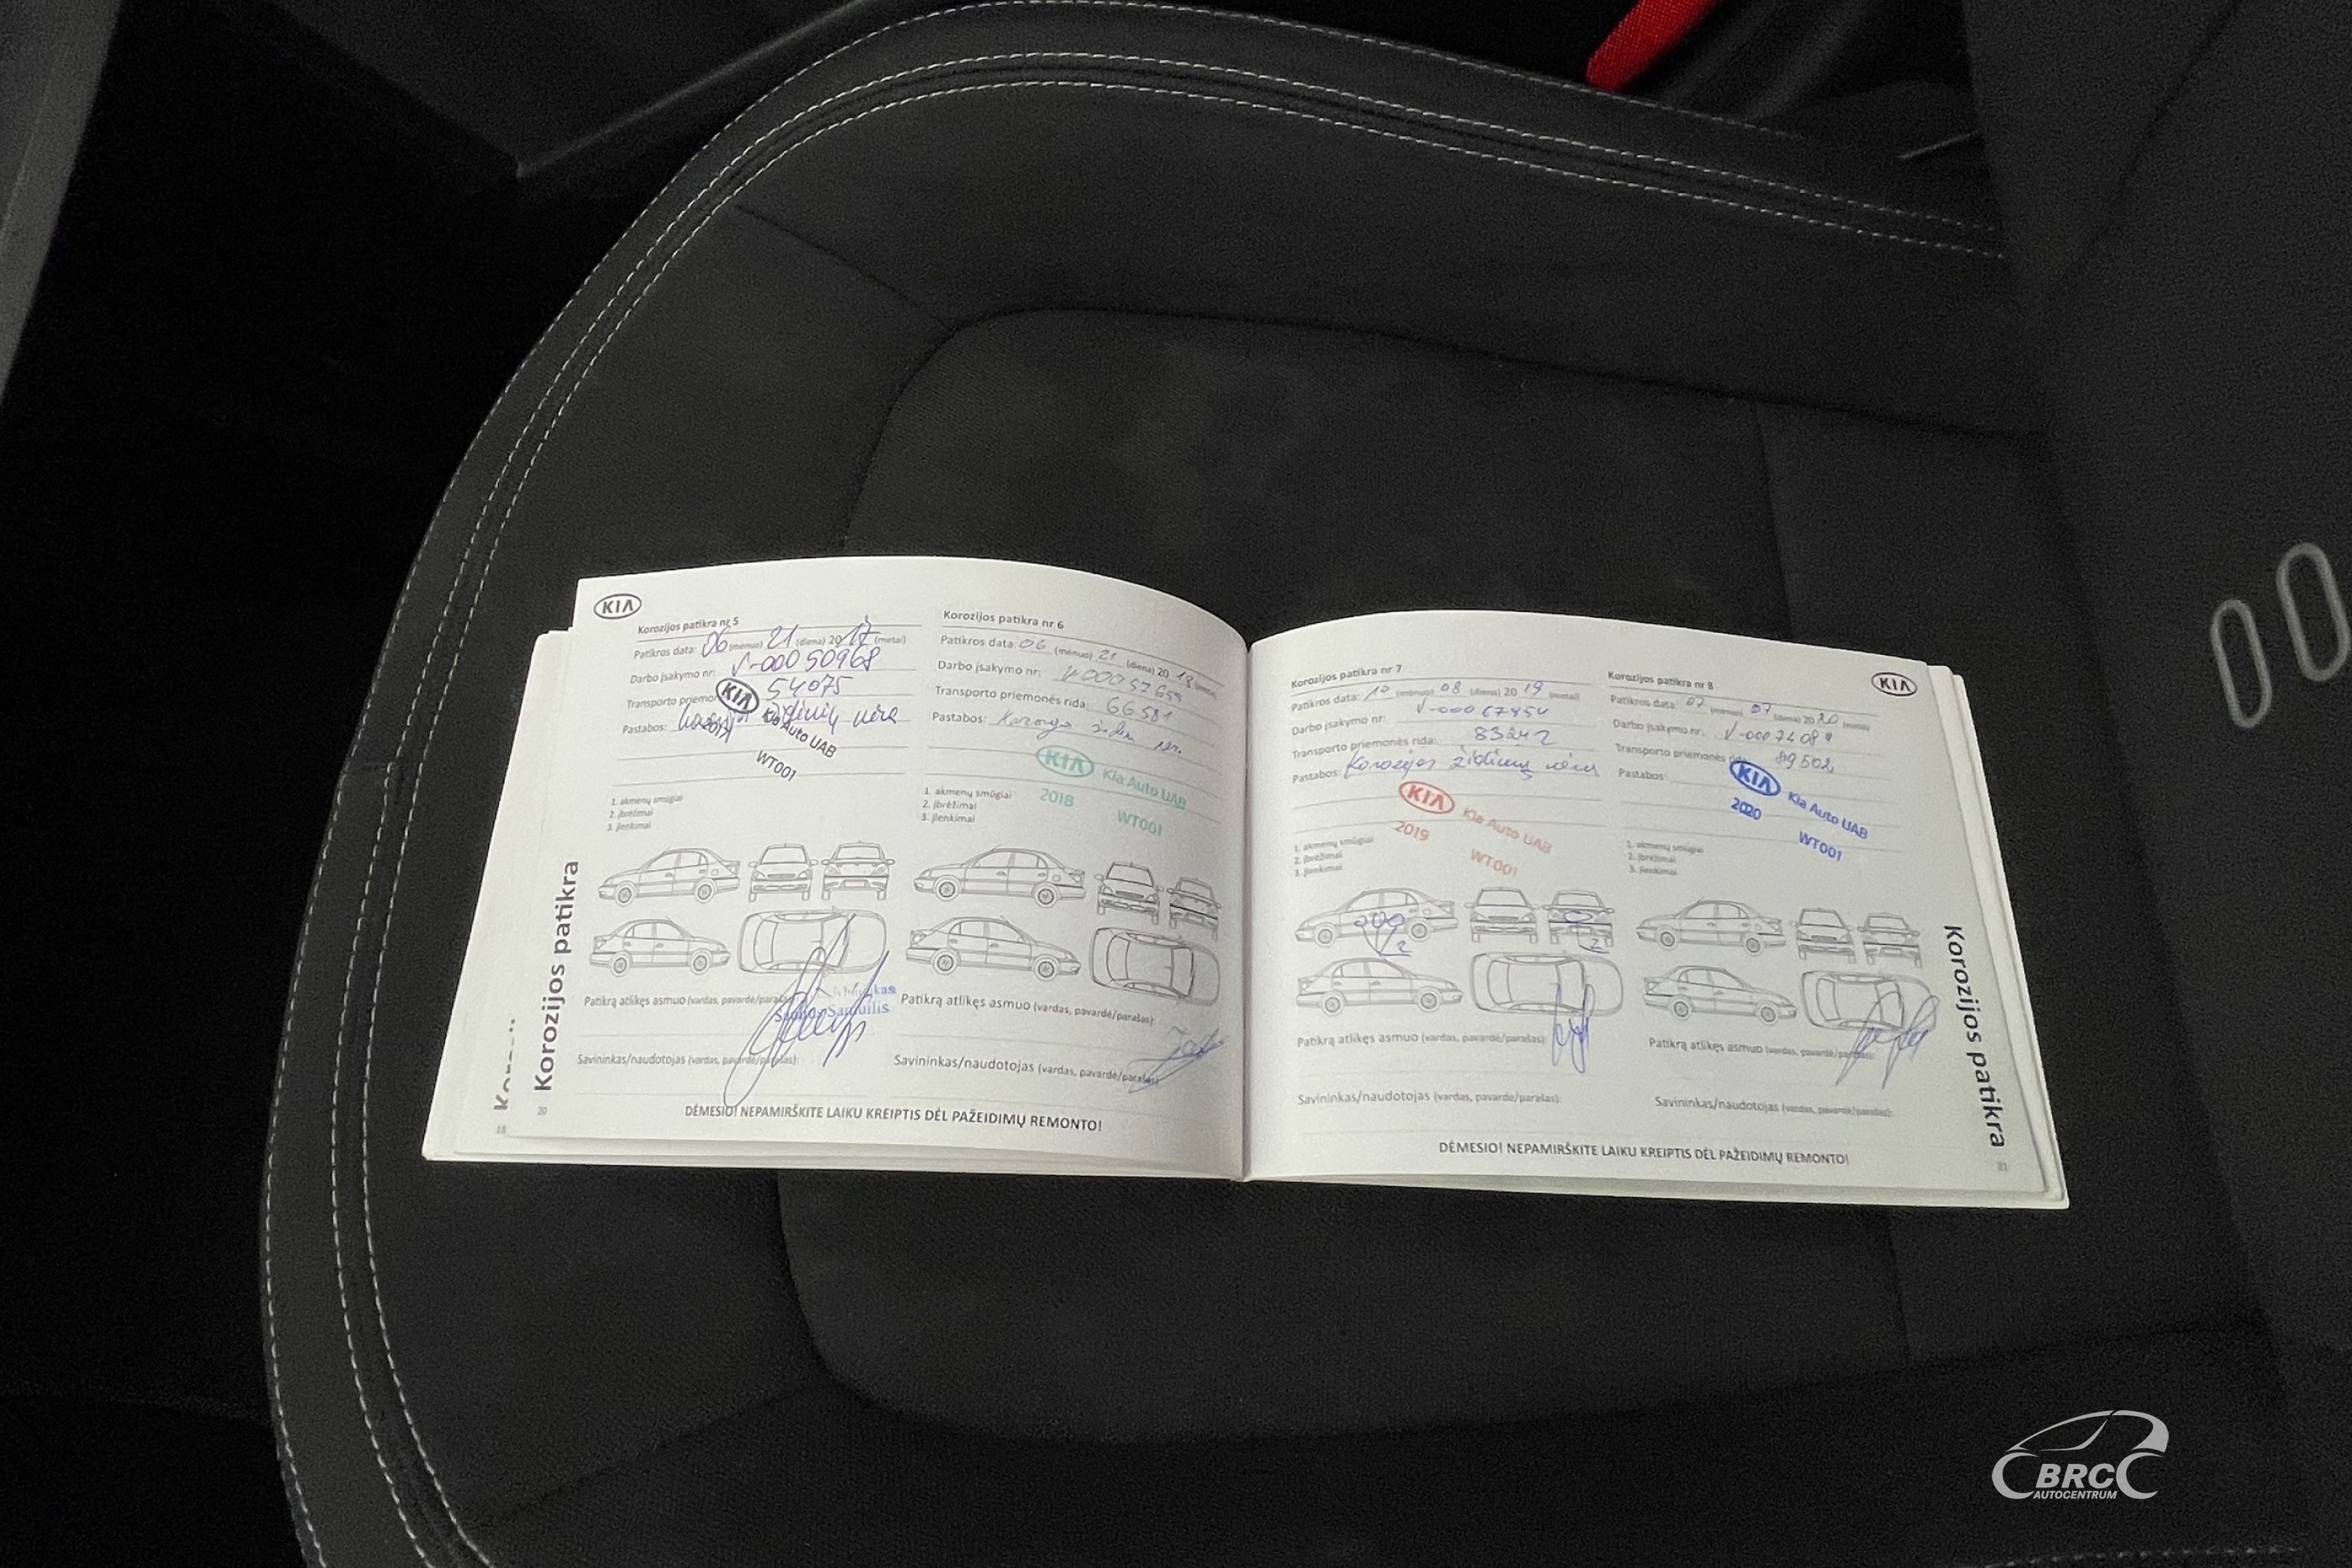 KIA
Korozijos patikra nr 5
Patikros data: 06 (mėnuo) 21 (diena) 2017 (metai)
Darbo įsakymo nr: V-00050968
Transporto priemon 54075
Pastabos: židinių nėra
KIA Kia Auto UAB
2017
WT001
1. akmenų smūgiai
2. įbrėžimai
3. įlenkimai
Patikrą atlikęs asmuo (vardas, pavardė/parašas)
Savininkas/naudotojas (vardas, pavardė/parašas):
Korozijos patikra nr 6
Patikros data: 06 (mėnuo) 21 (diena) 2018 (metai)
Darbo įsakymo nr:
Transporto priemonės rida: 66581
Pastabos:
KIA Kia Auto UAB
2018 WT001
1. akmenų smūgiai
2. įbrėžimai
3. įlenkimai
Patikrą atlikęs asmuo (vardas, pavardė/parašas):
Savininkas/naudotojas (vardas, pavardė/parašas)
DĖMESIO! NEPAMIRŠKITE LAIKU KREIPTIS DĖL PAŽEIDIMŲ REMONTO!
Korozijos patikra
20
18
KIA
Korozijos patikra nr 7
Patikros data: 10 (mėnuo) 08 (diena) 2019 (metai)
Darbo įsakymo nr:
Transporto priemonės rida: 83242
Pastabos: Korozijos židinių nėra
KIA Kia Auto UAB
2019 WT001
1. akmenų smūgiai
2. įbrėžimai
3. įlenkimai
2
2
Patikrą atlikęs asmuo (vardas, pavardė/parašas):
Savininkas/naudotojas (vardas, pavardė/parašas):
Korozijos patikra nr 8
Patikros data: 07 (mėnuo) 07 (diena) 2020 (metai)
Darbo įsakymo nr:
Transporto priemonės 89502
Pastabos:
KIA Kia Auto UAB
2020 WT001
1. akmenų smūgiai
2. įbrėžimai
3. įlenkimai
Patikrą atlikęs asmuo (vardas, pavardė/parašas):
Savininkas/naudotojas (vardas, pavardė/parašas):
DĖMESIO! NEPAMIRŠKITE LAIKU KREIPTIS DĖL PAŽEIDIMŲ REMONTO!
Korozijos patikra
21
BRC
AUTOCENTRUM